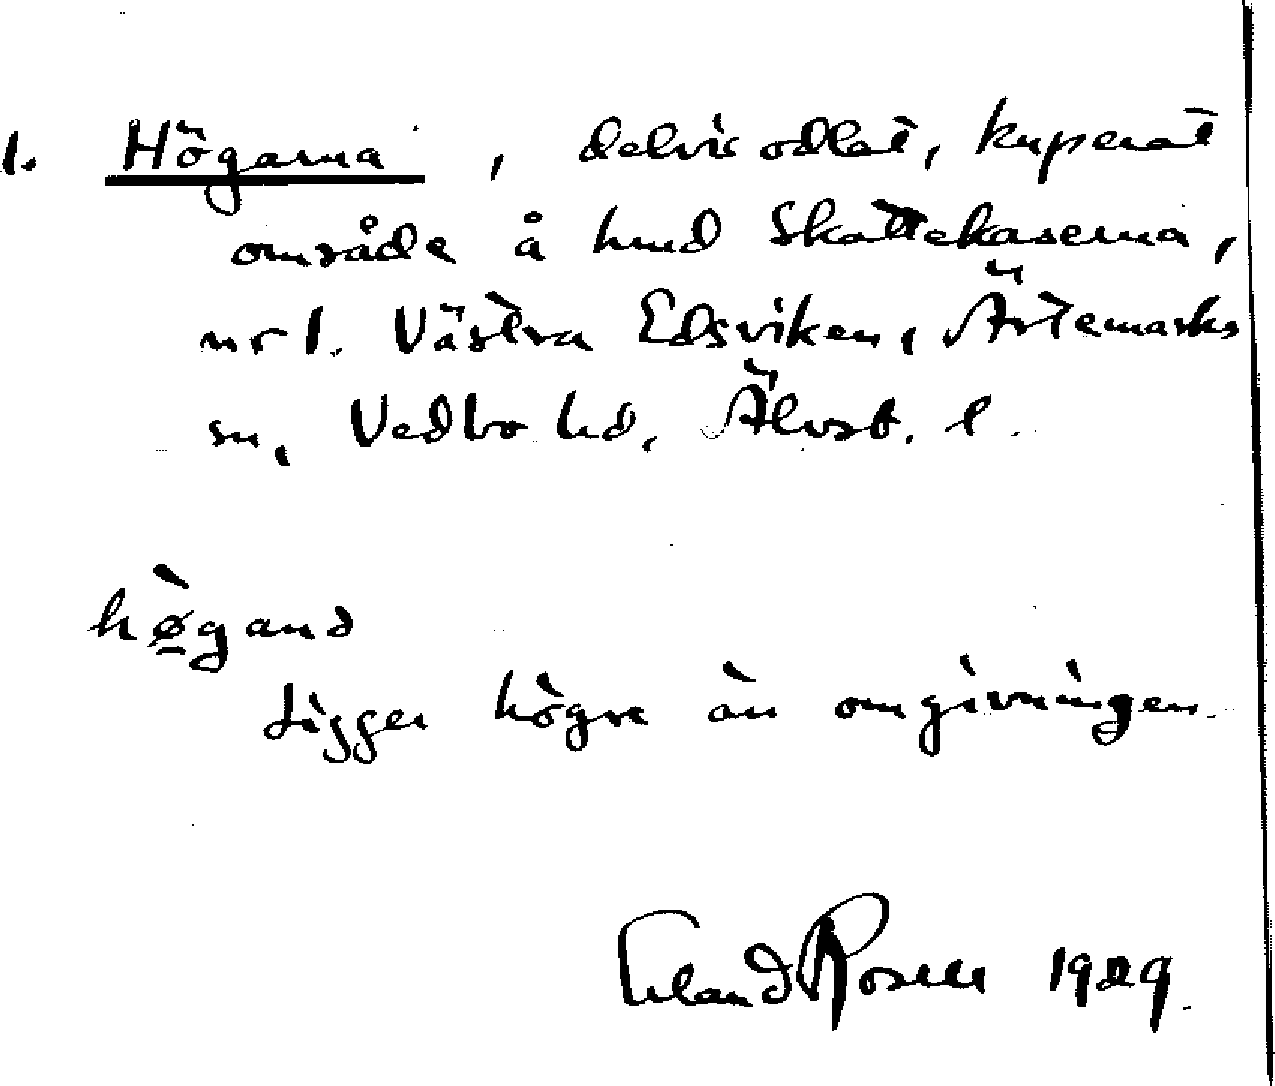 1. Högarna, delvis odlat, kuperat
område å hmd Skattekaserna,
nr 1. Västra Edsviken, Ärtemarks
sn, Vedbo hd. Älvsb. l.
hø̀gana
Ligger högre än omgivningen.
Erland Rosell 1929.